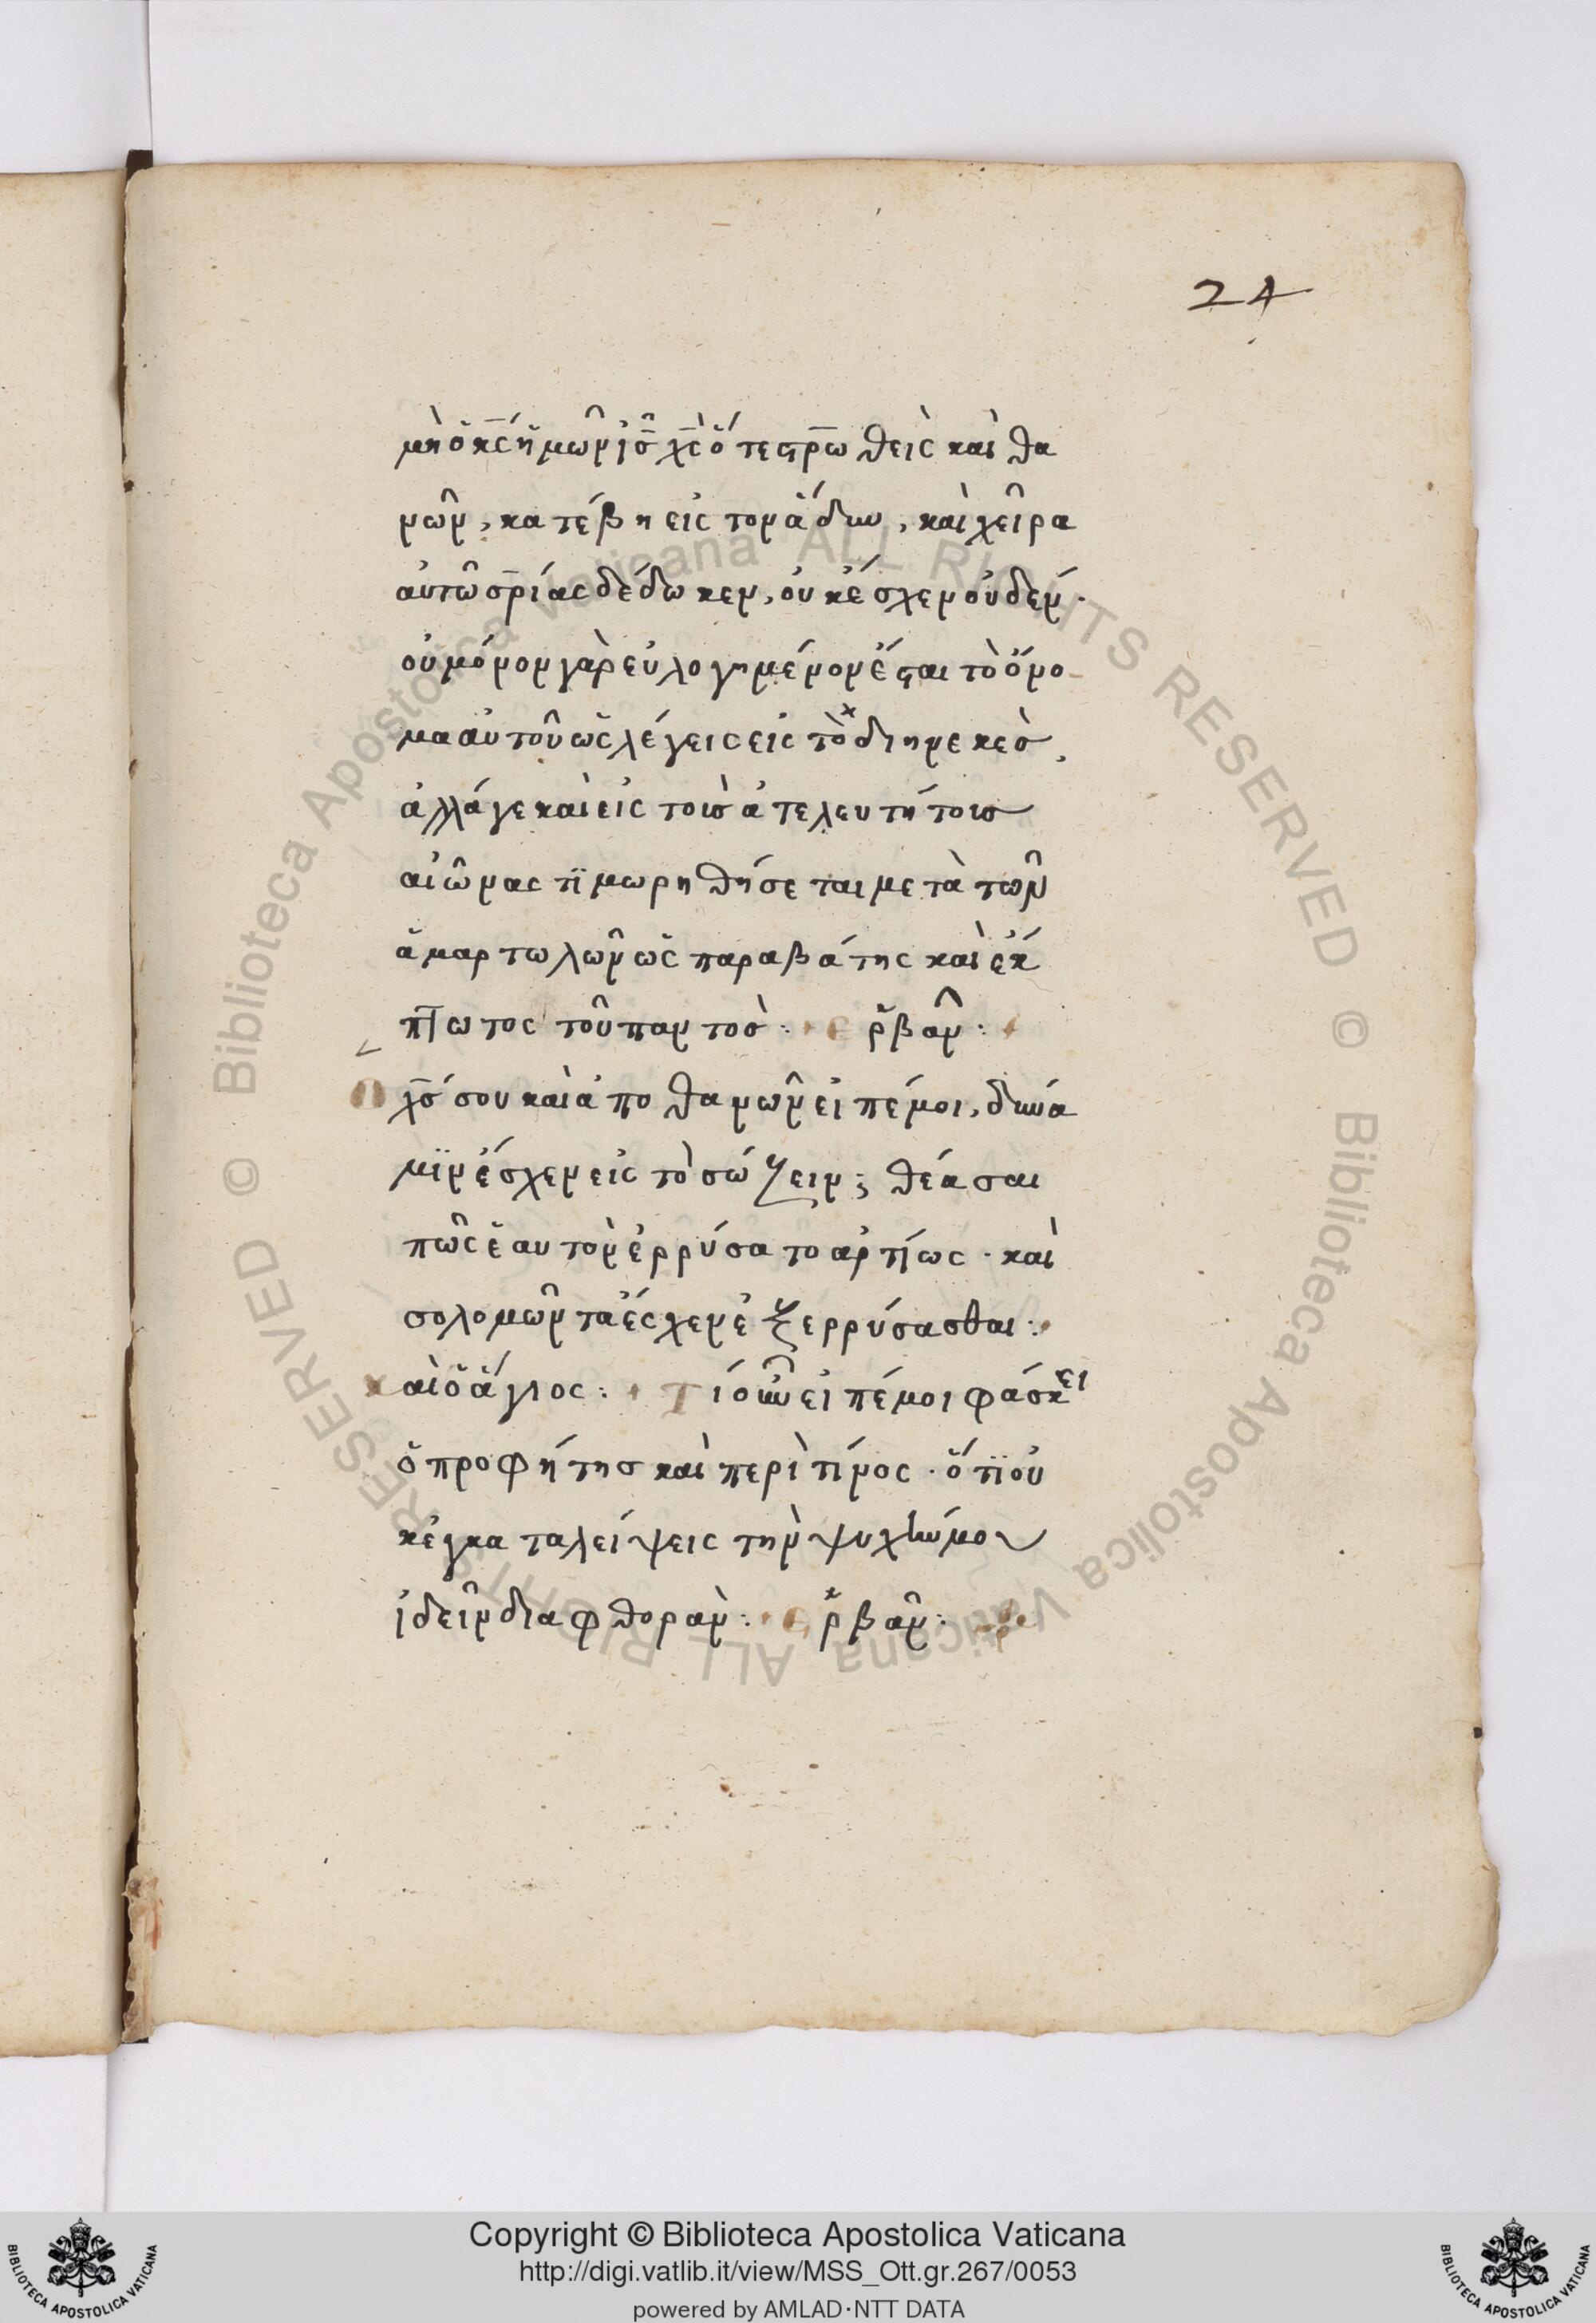 24
μὴ ὁ κ̅ς̅ ἡμῶν ι̅ς̅ χ̅ς̅ ὅτε σ̅ρ̅ωθεὶς καὶ θα
νὼν, κατέβη εἰς τὸν ἅδην, καὶ χεῖρα
αὐτῶ σ̅ρ̅ίας δέδωκεν, οὐκ ἔσχεν οὐδέν·
οὐ μόνον γὰρ εὐλογημένον ἔσται τὸ ὄνο
μα αὐτοῦ ὡς λέγεις εἰς τὸ διηνεκὲσ,
ἀλλά γε καὶ εἰς τοὺσ ἀτελευτήτουσ
αἰῶνας τϊμωρηθήσεται μετὰ τῶν
ἁμαρτωλῶν ὡς παραβάτης καὶ ἔκ
πτωτος τοῦ παντοσ: ε ῥβᾶν:
Ο χ̅σ̅ σου καὶ ἀποθανὼν εἰπέ μοι, δυνά
μϊν ἔσχεν εἰς τὸ σώζειν; θέασαι
πῶς ἑαυτὸν ἐρρύσατο ἀρτίως· καὶ
σολομῶντα ἔσχεν ἐξερρύσασθαι:
καὶ ὁ ἅγιος: Τίσιν εἰπέ μοι φάσκει
ὁ προφήτησ καὶ περὶ τίνος· ὅτϊ οὐ
κ ἐγκαταλείψεις τὴν ψυχήν μου
ἰδεῖν διαφθορὰν: ε ῥβᾶν:
Copyright © Biblioteca Apostolica Vaticana
http://digi.vatlib.it/view/MSS_Ott.gr.267/0053
powered by AMLAD·NTT DATA
BIBLIOTECA APOSTOLICA VATICANA
BIBLIOTECA APOSTOLICA VATICANA
© Biblioteca Apostolica Vaticana ALL RIGHTS RESERVED
© Biblioteca Apostolica Vaticana ALL RIGHTS RESERVED